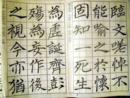 臨文嗟悼不
能喻之於懷
固知一死生
為虛誕齊彭
殤為妄作後
之視今亦猶